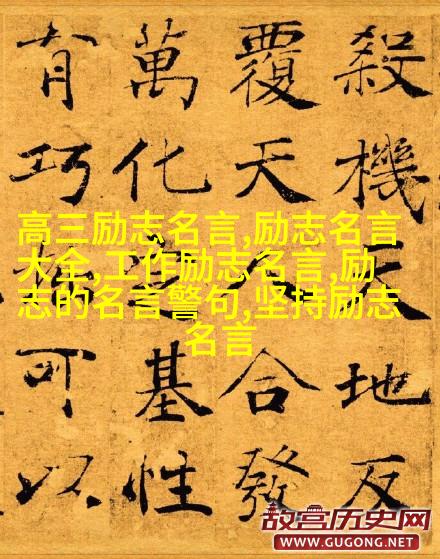 殺機天地反
覆天人合發
萬化基性
有巧可以
高三励志名言,励志名言
大全,工作励志名言,励
志的名言警句,坚持励志
名言
故宫历史网
WWW.GUGONG.NET